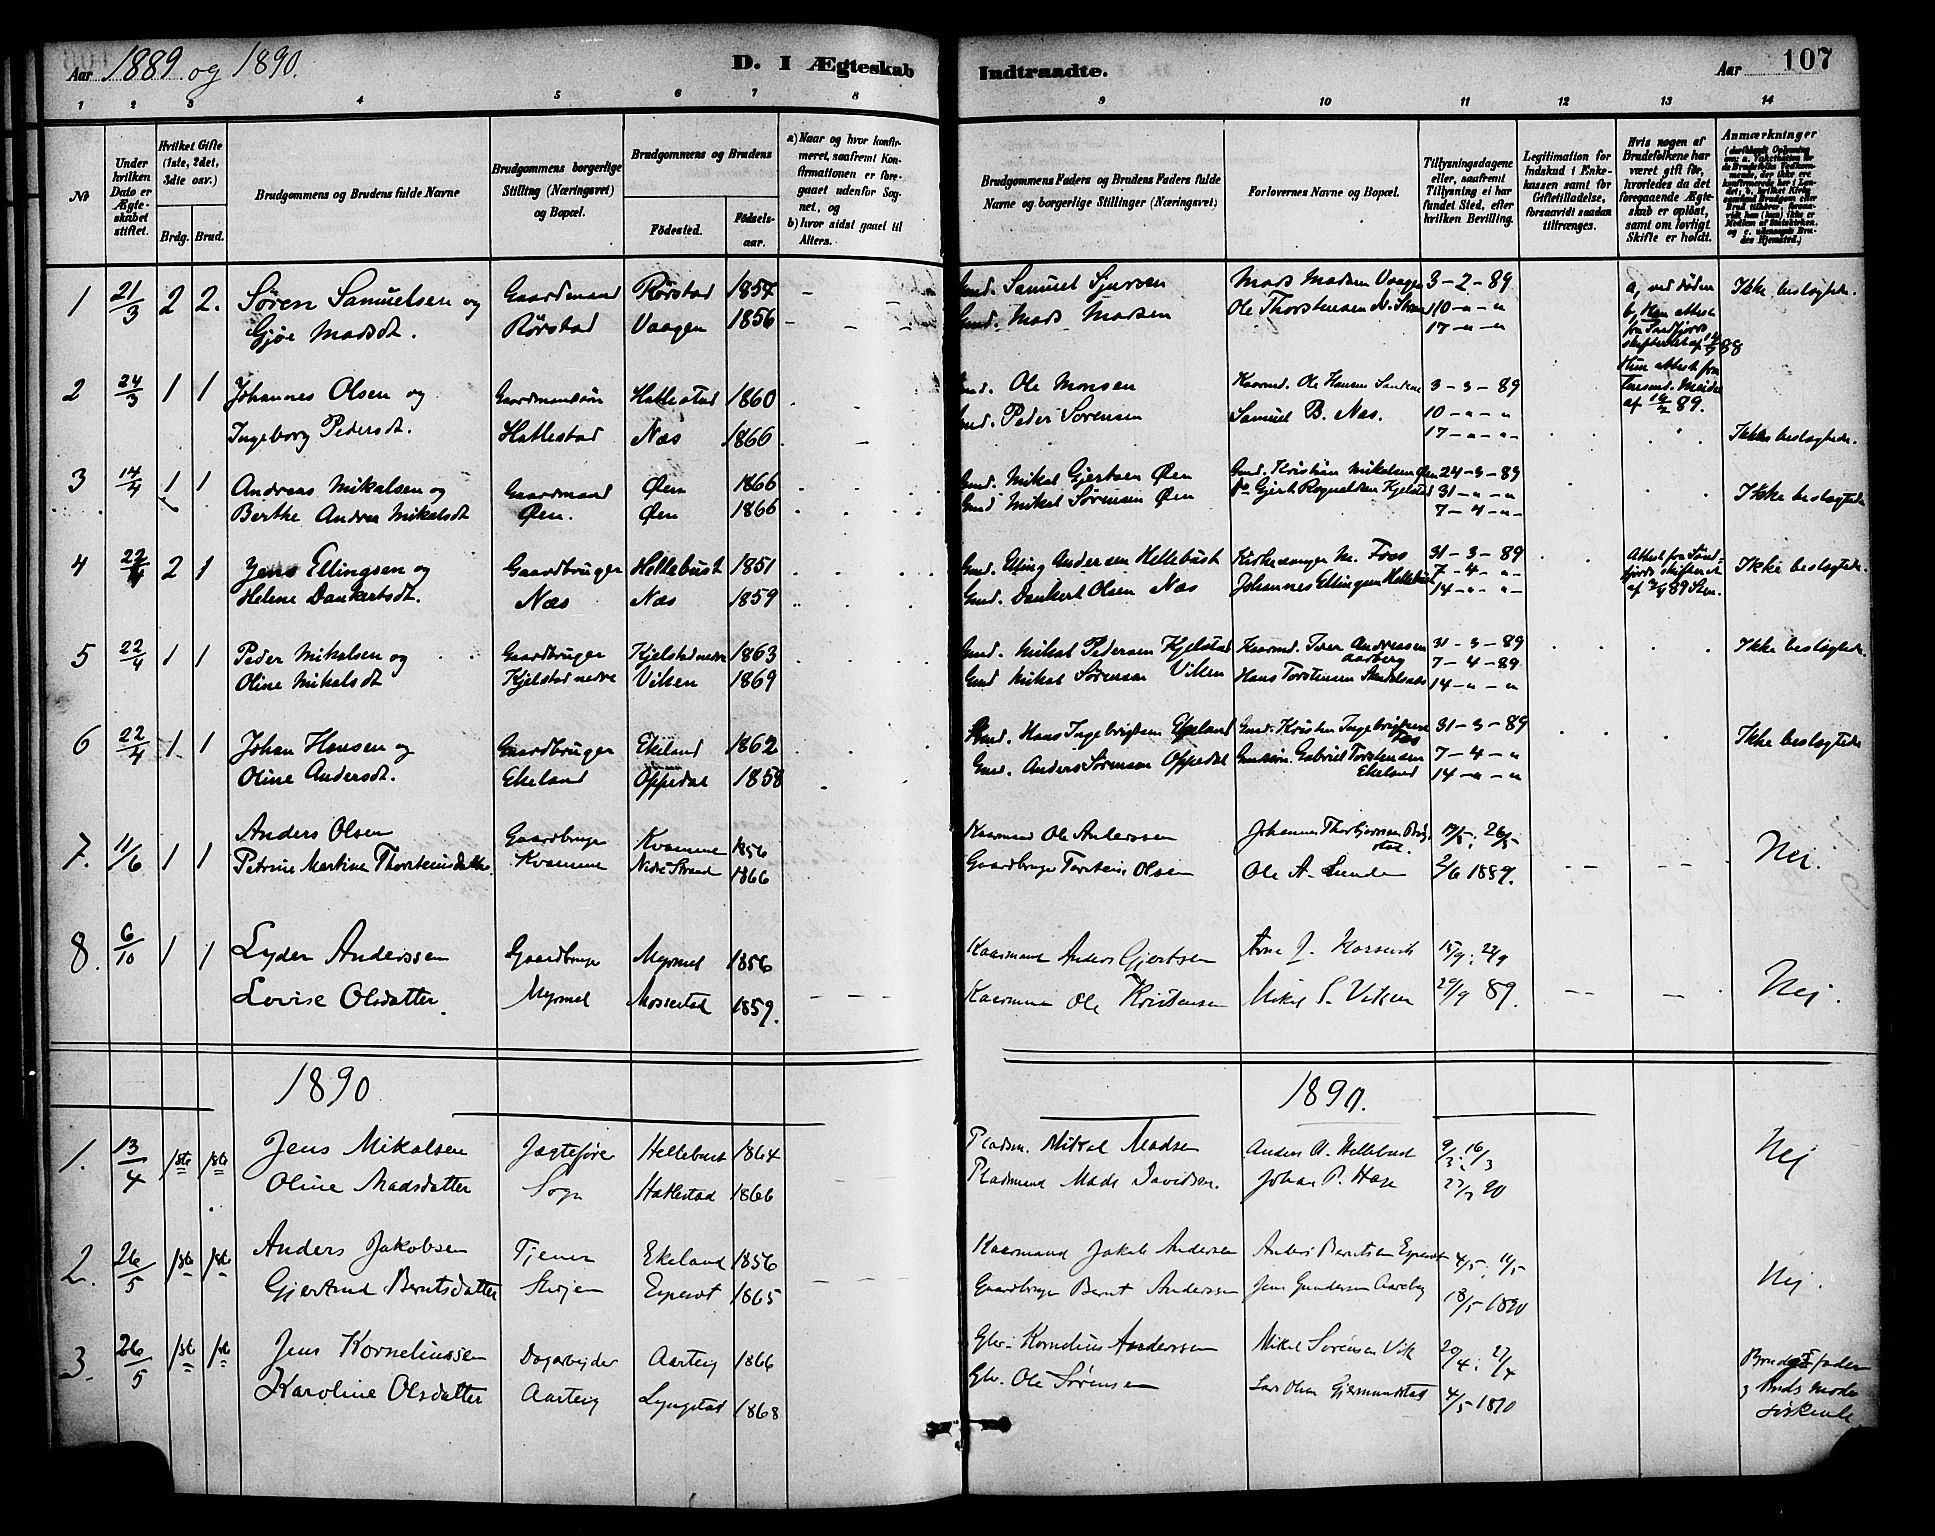 Aar 1889 og 1890.
D. I Ægteskab Indtraadte.
Aar 107
1 2 3 4 5 6 7 8 9 10 11 12 13 14
№
Under hvilken Dato er Ægteskabet stiftet.
Hvilket Gifte (1ste, 2det, 3die osv.)
Brdg. Brud.
Brudgommens og Brudens fulde Navne
Brudgommens borgerlige Stilling (Næringsvei) og Bopæl.
Brudgommens og Brudens
Födested.
Födselsaar.
a) Naar og hvor konfirmeret, saafremt Konfirmationen er foregaaet udenfor Sognet, og
b) hvor sidst gaaet til Alters.
Brudgommens Faders og Brudens Faders fulde Navne og borgerlige Stillinger (Næringsvei)
Forlovernes Navne og Bopæl.
Tillysningsdagene eller, saafremt Tillysning ei har fundet Sted, efter hvilken Bevilling.
Legitimation for Indskud i Enkekassen samt for Giftetilladelse, forsaavidt saadan tiltrænges.
Hvis nogen af Brudefolkene har været gift før, hvorledes da det foregaaende Ægteskab er opløst, samt om lovligt Skifte er holdt.
Anmærkninger
1 21/3 2 2. Søren Samuelsen og Gaardmand Rørstad 1857 Gmd. Samuel Sjursen Mads Madsen Vaage 3-2-89 a, ved døden Ikke beslægtede.
Gjøe Madsdt. Rørstad Vaagen 1856 Gmd. Mads Madsen Ole Thorstensen N. Strand 10-"-" b, Ham attest
17-"-" fra Sundfjords
skifteret af 14/9 88
Hun attest fra
2 24/3 1 1 Johannes Olsen og Gaardmandsøn Hatlestad 1860 Gmd. Ole Monsen Kaarmd. Ole Hansen 3-3-89
Ingeborg Pedersdt. Hatlestad Næs 1866 Gmd. Peder Sørensen Samuel B. Næs. 10-"-" af 16/2 89.
17-"-" Ikke beslægtede.
3 14/4 1 1 Andreas Mikalsen og Gaardmand Øen 1866 Gmd. Mikal Gjertsen Øen Gmd. Kristian Mikalsen Øen 24-3-89
Berthe Andrea Mikalsdt Øen. Øen 1866 Gmd Mikal Sørensen Øen do Gjert Rognaldsen Kjelstad 31-"-" Ikke beslægtede
7-4-"-
4 22/4 2 1 Jens Ellingsen og Gaardbruger Hellebust 1851 Gmd. Elling Andersen Hellebust Kirkesanger M. Fos 31-3-89 Attest fra Sønd- Ikke beslægtede.
Helene Dankertsdt. Næs Næs 1859 Gmd. Dankert Olsen Næs Johannes Ellingsen Hellebust 7-4-"- fjords skifteret
14-"-"- af 2/4 89
5 22/4 1 1 Peder Mikalsen og Gaardbruger Kjelstad nedre 1863 Gmd. Mikal Pedersen Kjelstad Kaarmd. Iver Andreassen Aarberg 31-3-89 Ikke beslægtede
Oline Mikalsdt Kjelstad nedre Vilsen 1869 Gmd Mikal Sørensen Vilsen Hans Torstensen 7-4-89
14-"-"
6 22/4 1 1 Johan Hansen og Gaardbruger Ekeland 1862 Gmd. Hans Ingebrigtsen Ekeland Gmd. Kristen Ingebrigtsen Fos 31-3-89 Ikke beslægtede
Oline Andersdt. Ekeland Oppedal 1858 Gmd. Anders Sørensen Oppedal Gmdsøn. Gabriel Torstensen Ekeland 7-4-"
14-"-"
7. 11/6 1 1 Anders Olsen Gaardbruger Kvamme 1856 Kaarmand Ole Anderssen Johannes Thorbjørnsen 19/5. 26/5 Nej.
Petrine Martine Thorsteinsdatter Kvamme Nedre Strand 1866 Gaardbruger Torstein Olsen Ole A. Lunde 2/6 1889.
8. 6/10 1 1 Lyder Anderssen Gaardbruger Myrmel 1856 Kaarmand Anders Gjertsen Arne J. 15/9. 22/9 Nej.
Lovise Olsdatter. Myrmel Mossestad 1859. Kaarmand Ole Kristensen Mikal S. Vilsen 29/9 89.
1890 1890.
1. 13/4 1ste 1ste Jens Mikalsen Jægtefører Hellebust 1864 Pladsm. Mikal Madsen Anders A. Hellebust 9/3. 16/3 Nej
Oline Madsdatter Sogn Hatlestad 1866 Pladsmand Mads Davidsen. Johan P. 23/3 90
2. 26/5 1ste 1ste Anders Jakobsen Tjener Ekeland 1856 Kaarmand Jakob Andersen Anders Berntsen Espeset 4/5. 11/5 Nej.
Gjertrud Berntsdatter Espeset 1865 Gaardbruger Bernt Anderssen Jens Gundersen Aarberg 18/5 1890
3. 26/5 1ste 1ste Jens Korneliussen Dagarbejder Aarteig 1866 Gbr. Kornelius Anderssen Mikal Sørensen Vik 20/4. 27/4 Brudgs Fader
Karoline Olsdatter Aarteig Lyngstad 1868 Gbr. Ole Sørensen Lars Olsen Gjermundstad 4/5 1890 og Bruds Moder
Søskende